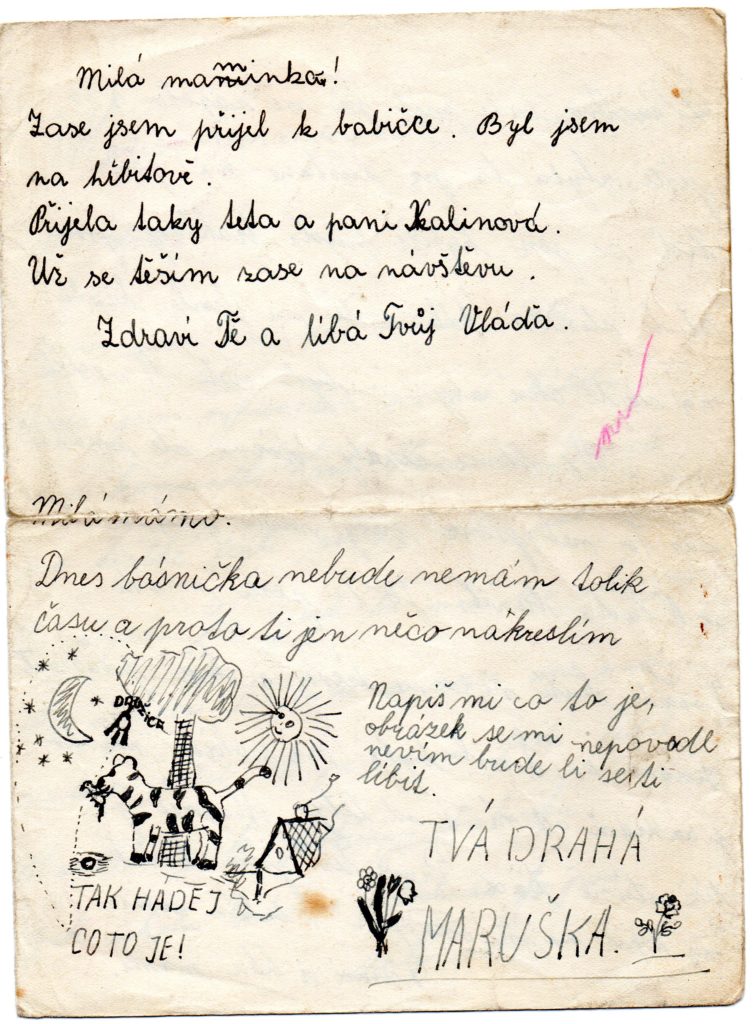 Milá maminko!
Zase jsem přijel k babičce. Byl jsem
na hřbitově.
Přijela taky teta a pani Kalinová.
Už se těším zase na návštěvu.
Zdraví Tě a líbá Tvůj Vláďa.
Milá mámo.
Dnes básnička nebude nemám tolik
času a proto ti jen něco nákreslím
DRUŽICE
Napiš mi co to je,
obrázek se mi nepovedl
nevím bude li se ti
líbit.
TVÁ DRAHÁ
MARUŠKA.
TAK HADEJ
CO TO JE!